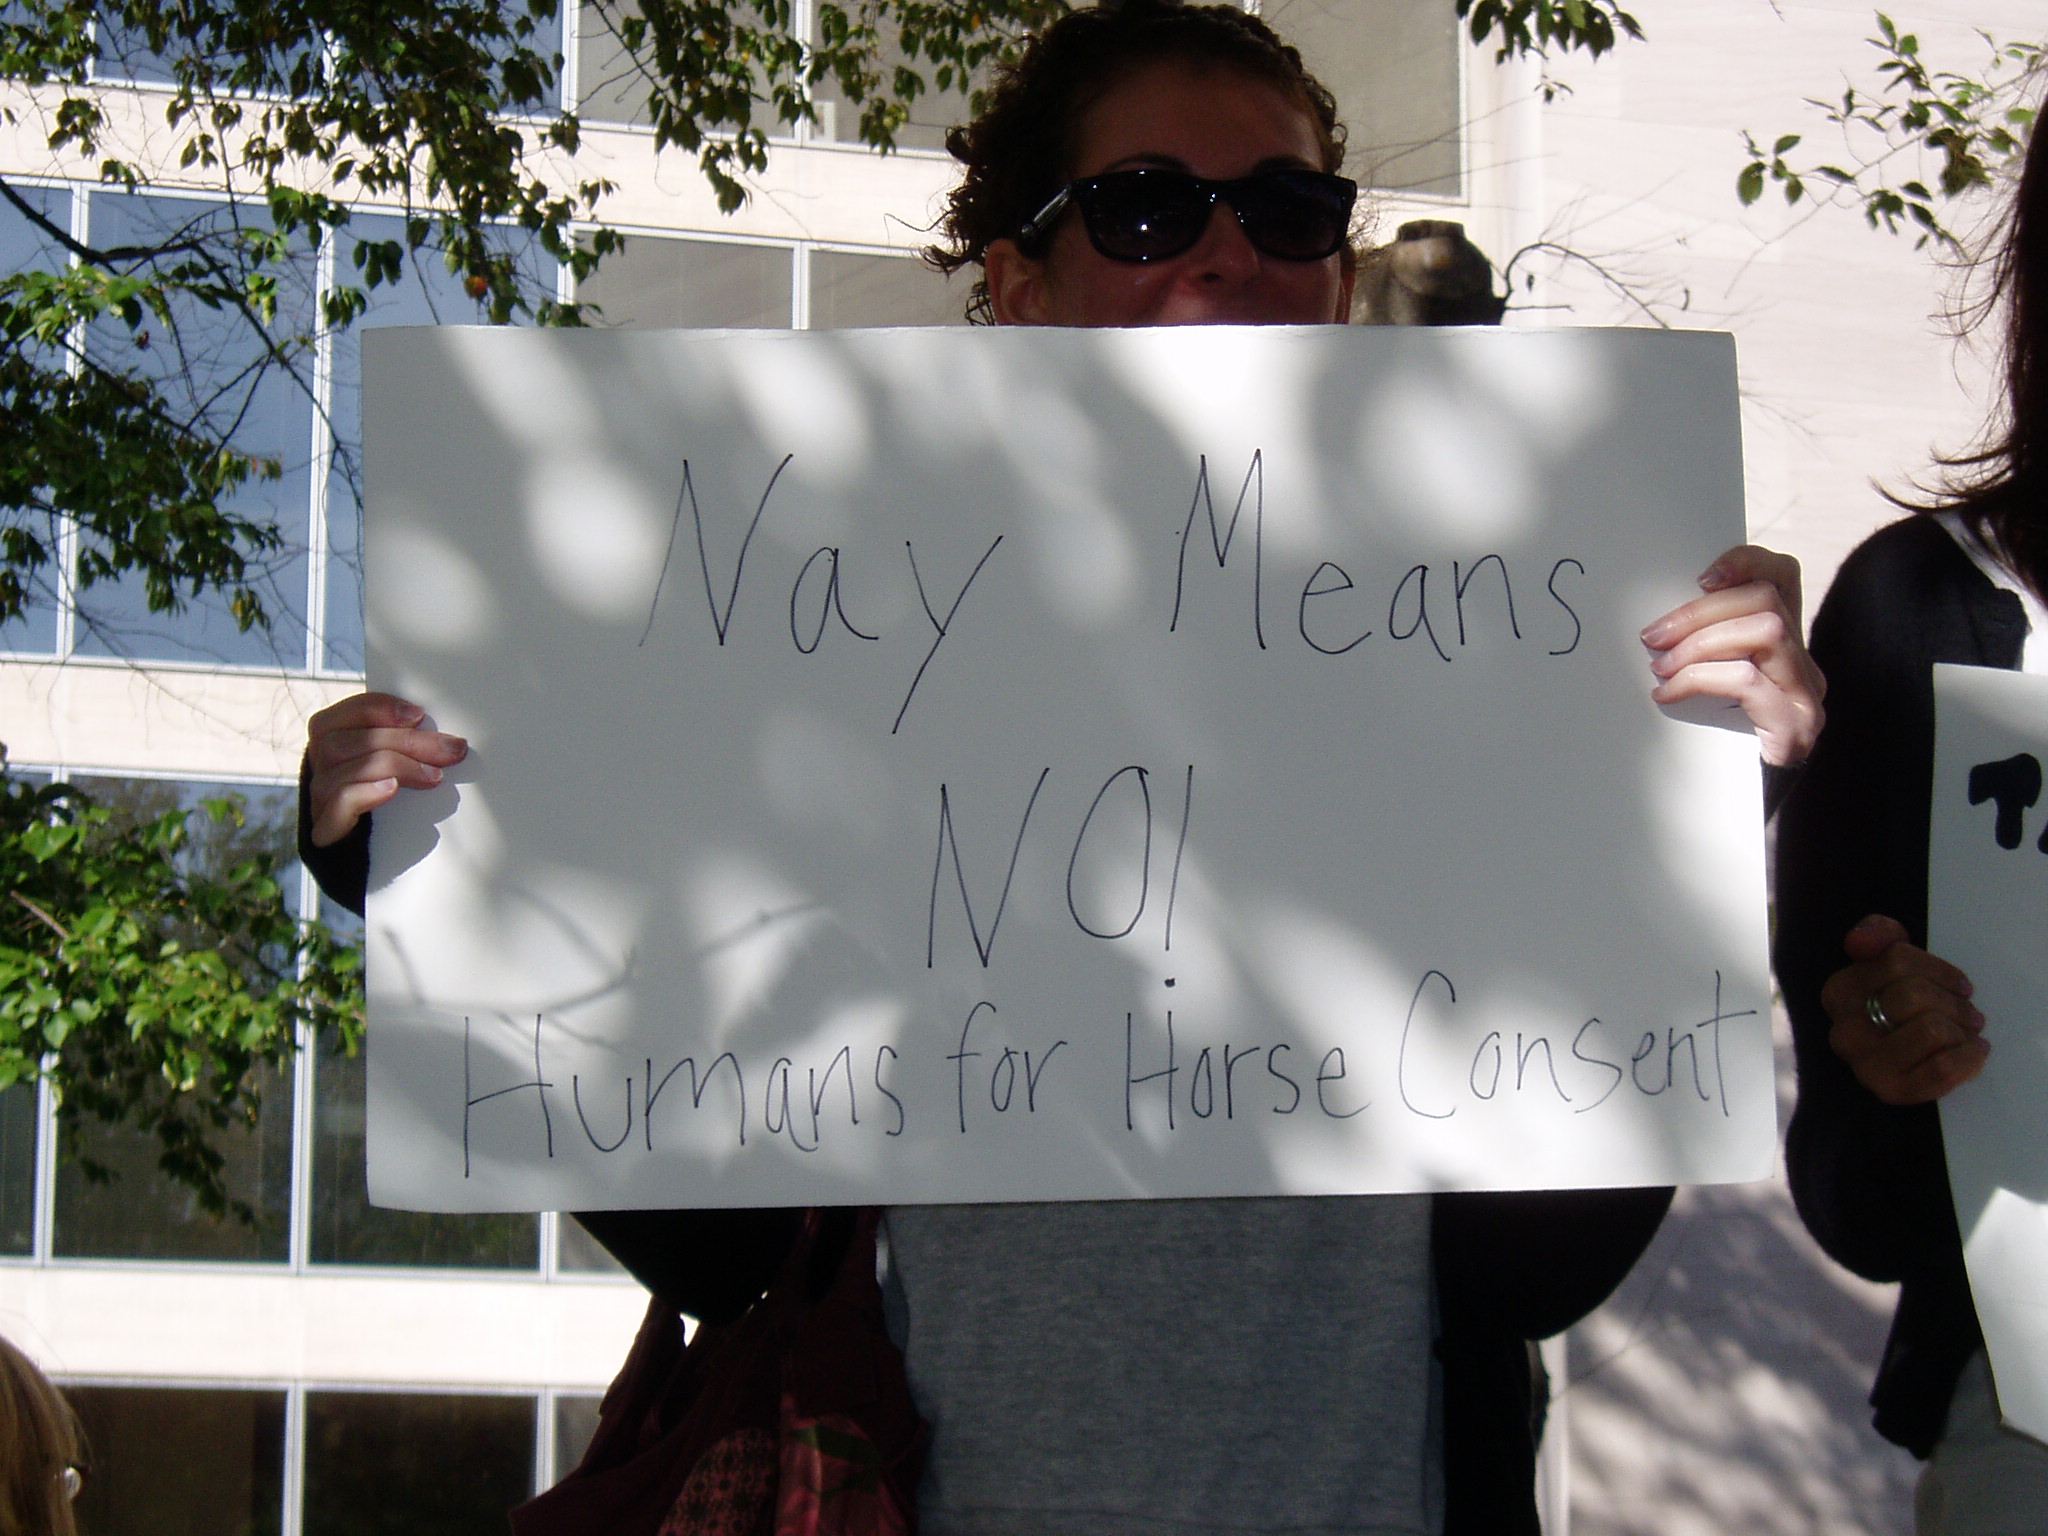 Nay Means
NO!
Humans for Horse Consent